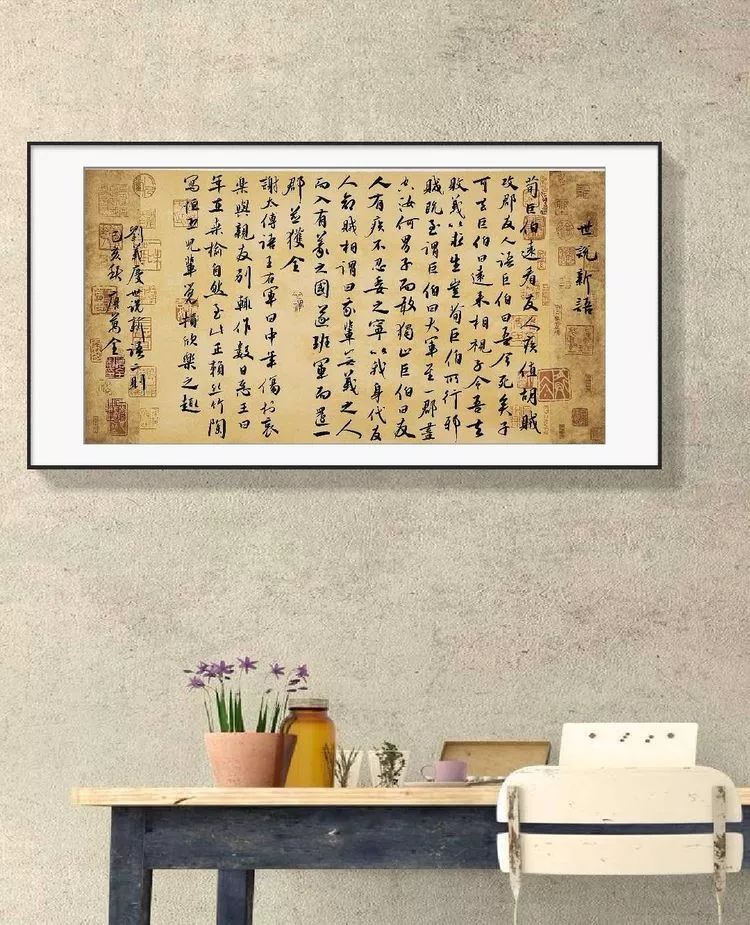 世說新語
荀巨伯遠看友人疾值胡賊
攻郡友人語巨伯曰吾今死矣子
可去巨伯曰遠来相視子令吾去
敗義以求生豈荀巨伯所行邪
賊既至謂巨伯曰大軍至郡盡
空汝何男子而敢獨止巨伯曰友
人有疾不忍委之寧以我身代友
人命賊相謂曰我輩無義之人
而入有義之國遂班軍而還一
郡並獲全
謝太傅語王右軍曰中年傷於哀
樂與親友別輒作數日惡王曰
年在桑榆自然至此正賴絲竹陶
寫恒恐兒輩覺損欣樂之趣
劉義慶世說新語二則
己亥秋